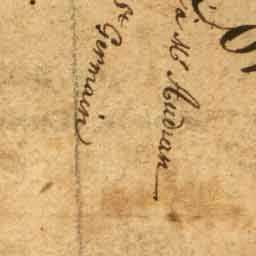 à Mr Audran
St Germain